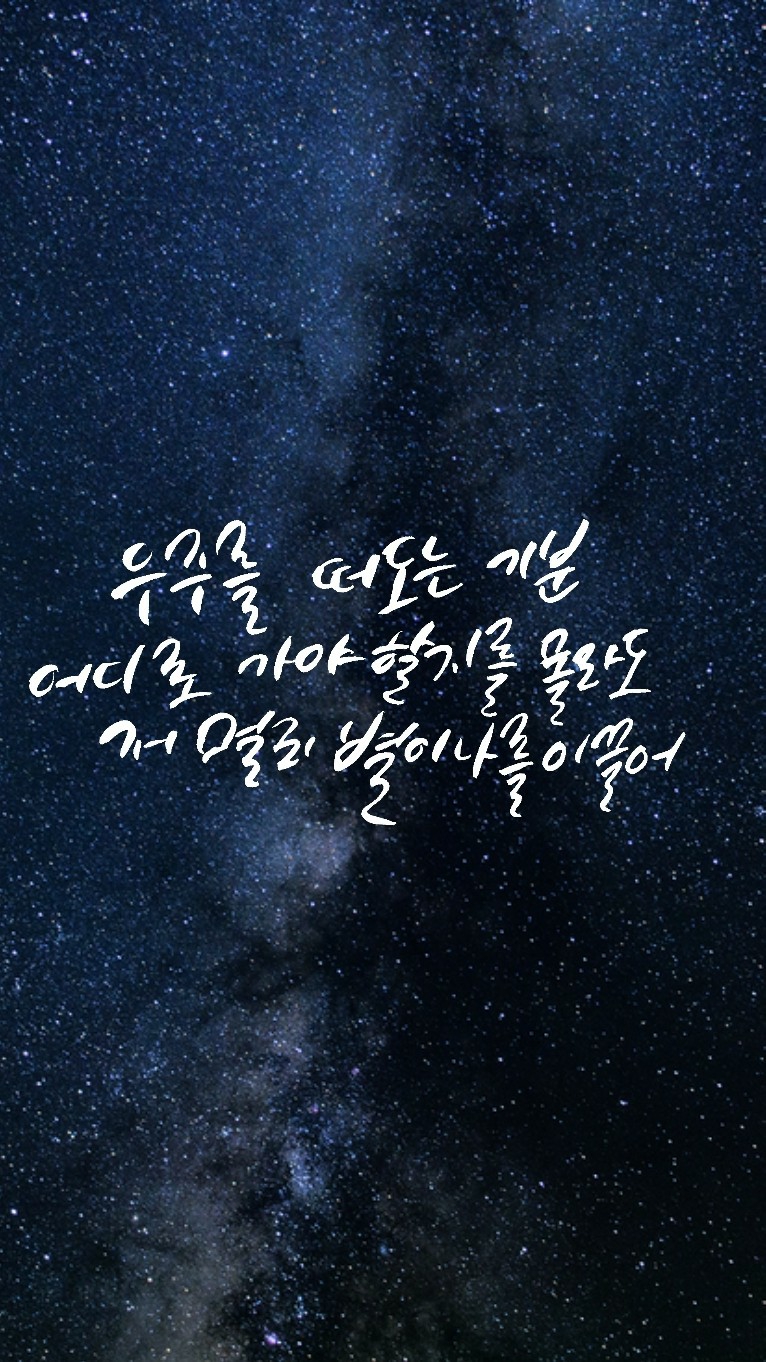 우주를 떠도는 기분
어디로 가야 할지를 몰라도
저 멀리 별이 나를 이끌어